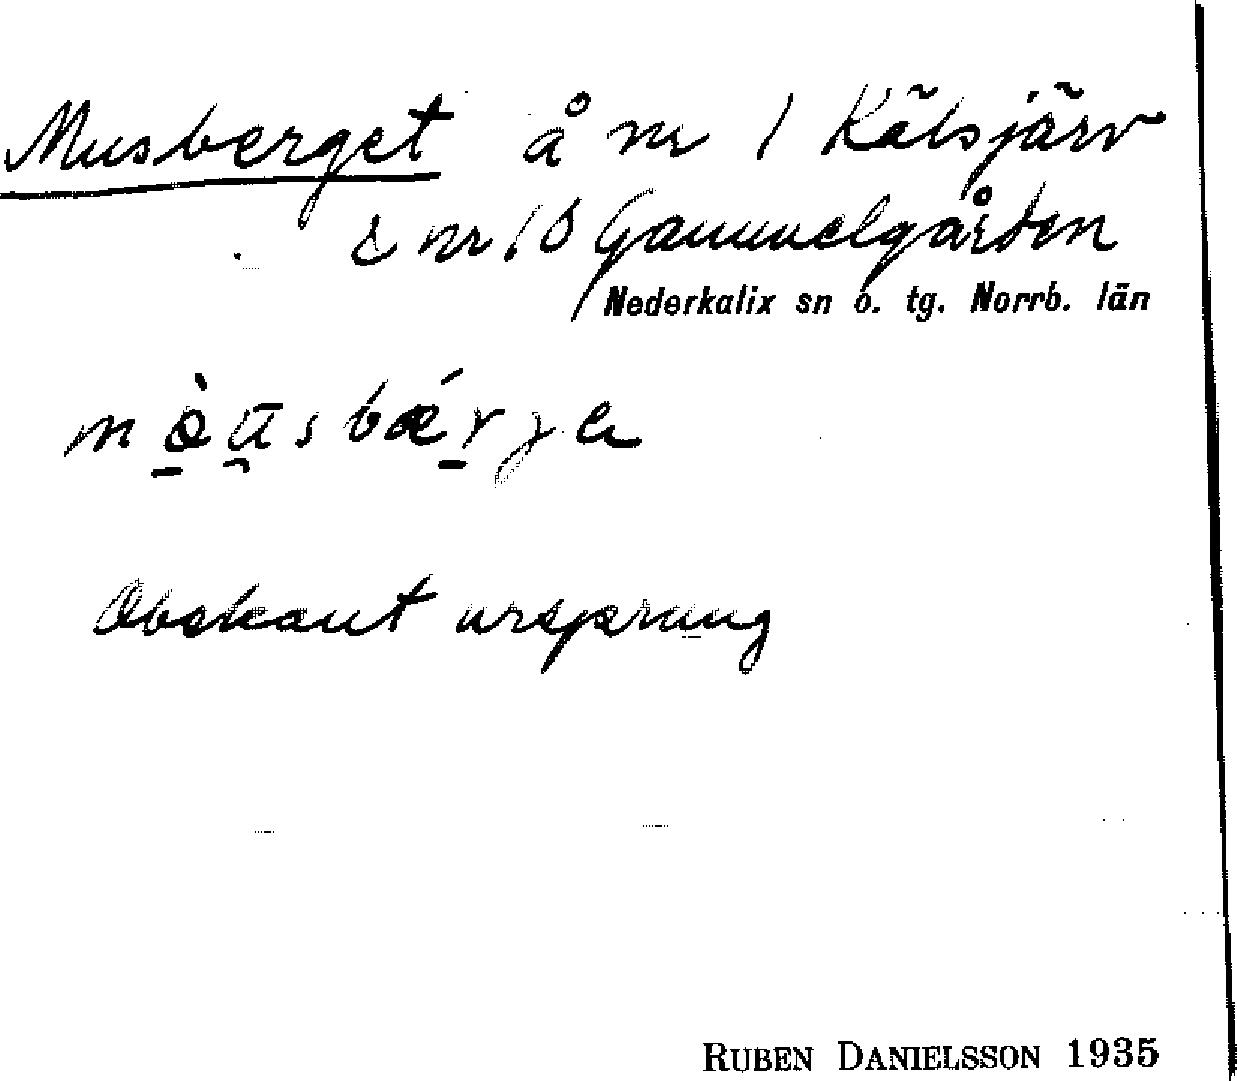 Musberget å nr 1 Kälsjärv
& nr 10 Gammelgården
Nederkalix sn o. tg. Norrb. län
mò̱ṳ̄sbǽṟje
Obskönt ursprung
RUBEN DANIELSSON 1935